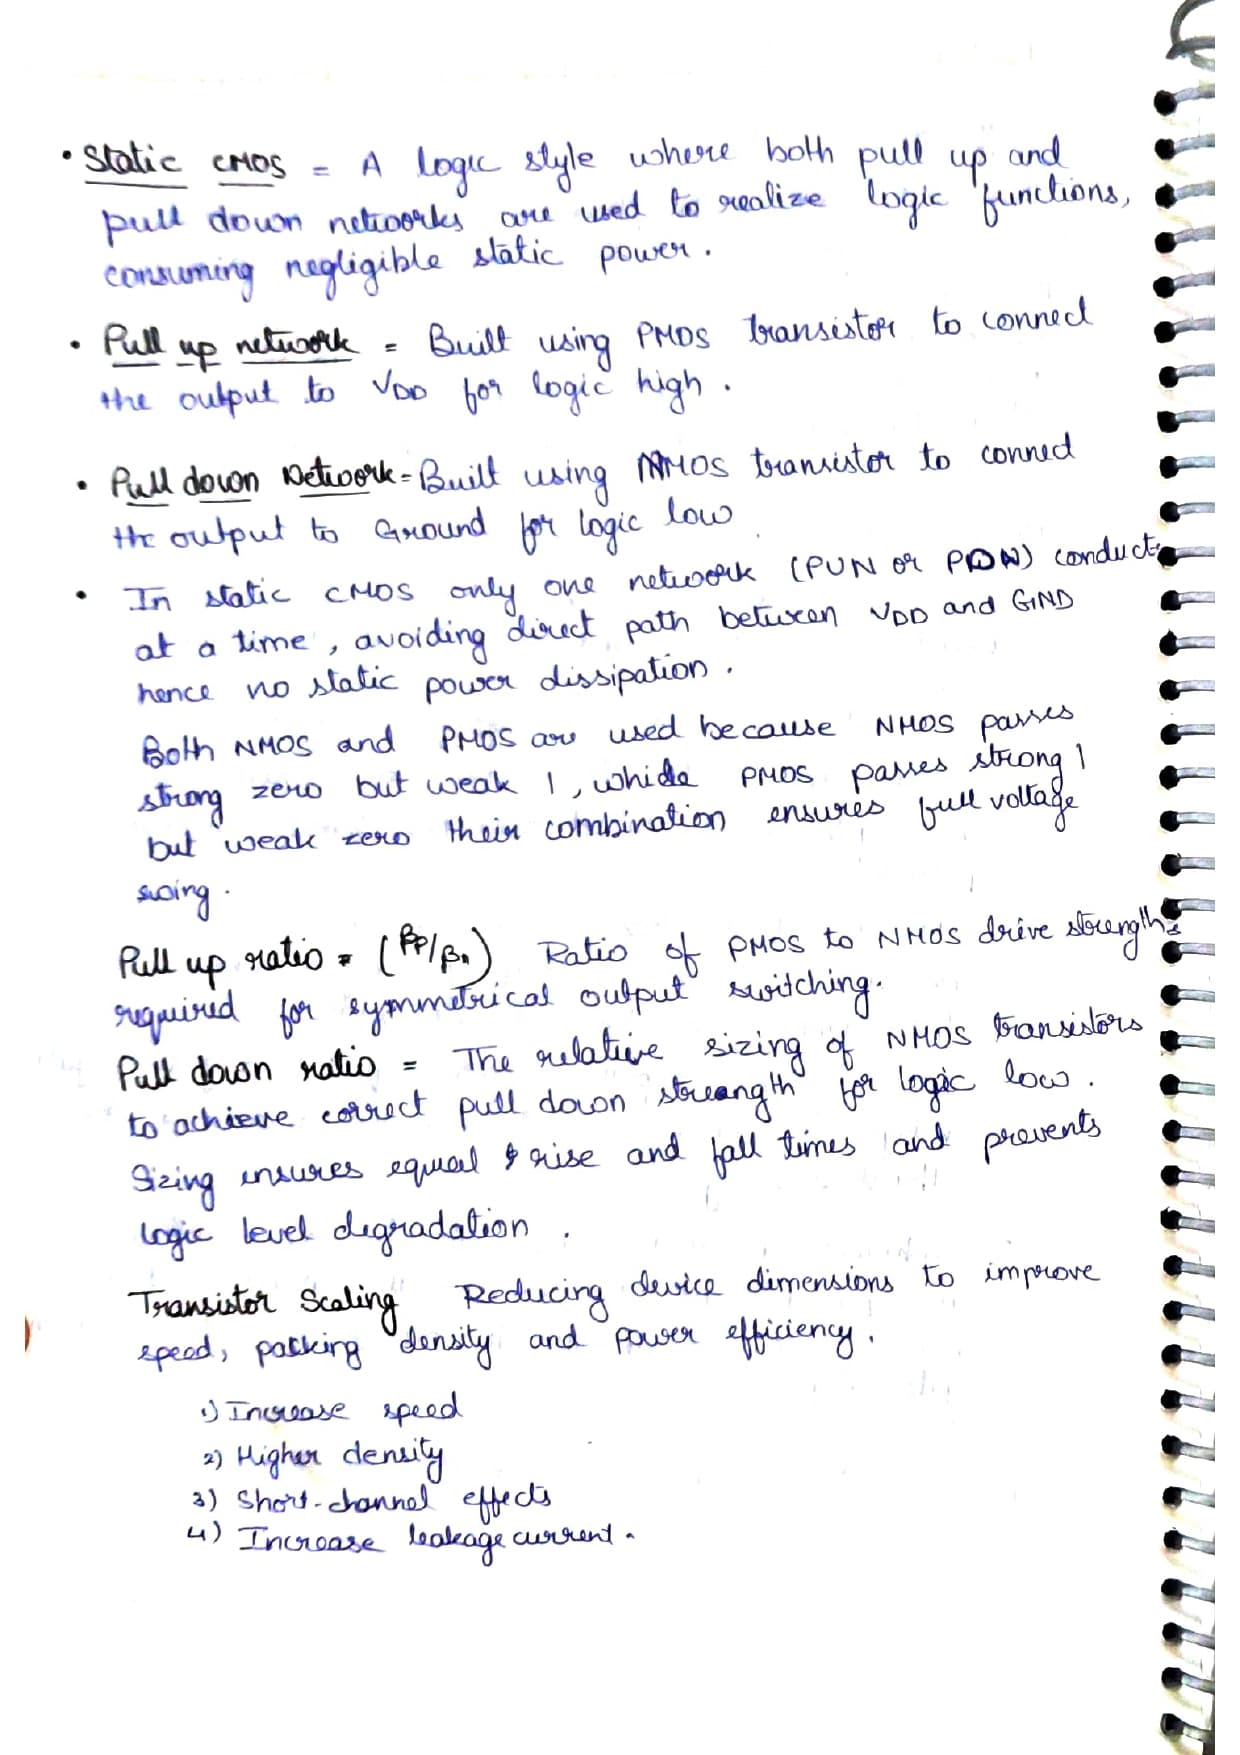 • Static CMOS = A logic style where both pull up and
pull down networks are used to realize logic functions,
consuming negligible static power.
• Pull up network = Built using PMOS transistor to connect
the output to VDD for logic high.
• Pull down Network = Built using NMOS transistor to connect
the output to Ground for logic low
• In static CMOS only one network (PUN or PDN) conducts
at a time, avoiding direct path between VDD and GND
hence no static power dissipation.
Both NMOS and PMOS are used because NMOS passes
strong zero but weak 1, while PMOS passes strong 1
but weak zero their combination ensures full voltage
swing.
Pull up ratio = (βp/βn) Ratio of PMOS to NMOS drive strengths
required for symmetrical output switching.
Pull down ratio = The relative sizing of NMOS transistors
to achieve correct pull down streangth for logic low.
Sizing ensures equal rise and fall times and prevents
logic level degradation.
Transistor Scaling Reducing device dimensions to improve
speed, packing density and power efficiency.
1) Increase speed
2) Higher density
3) Short-channel effects
4) Increase leakage current.